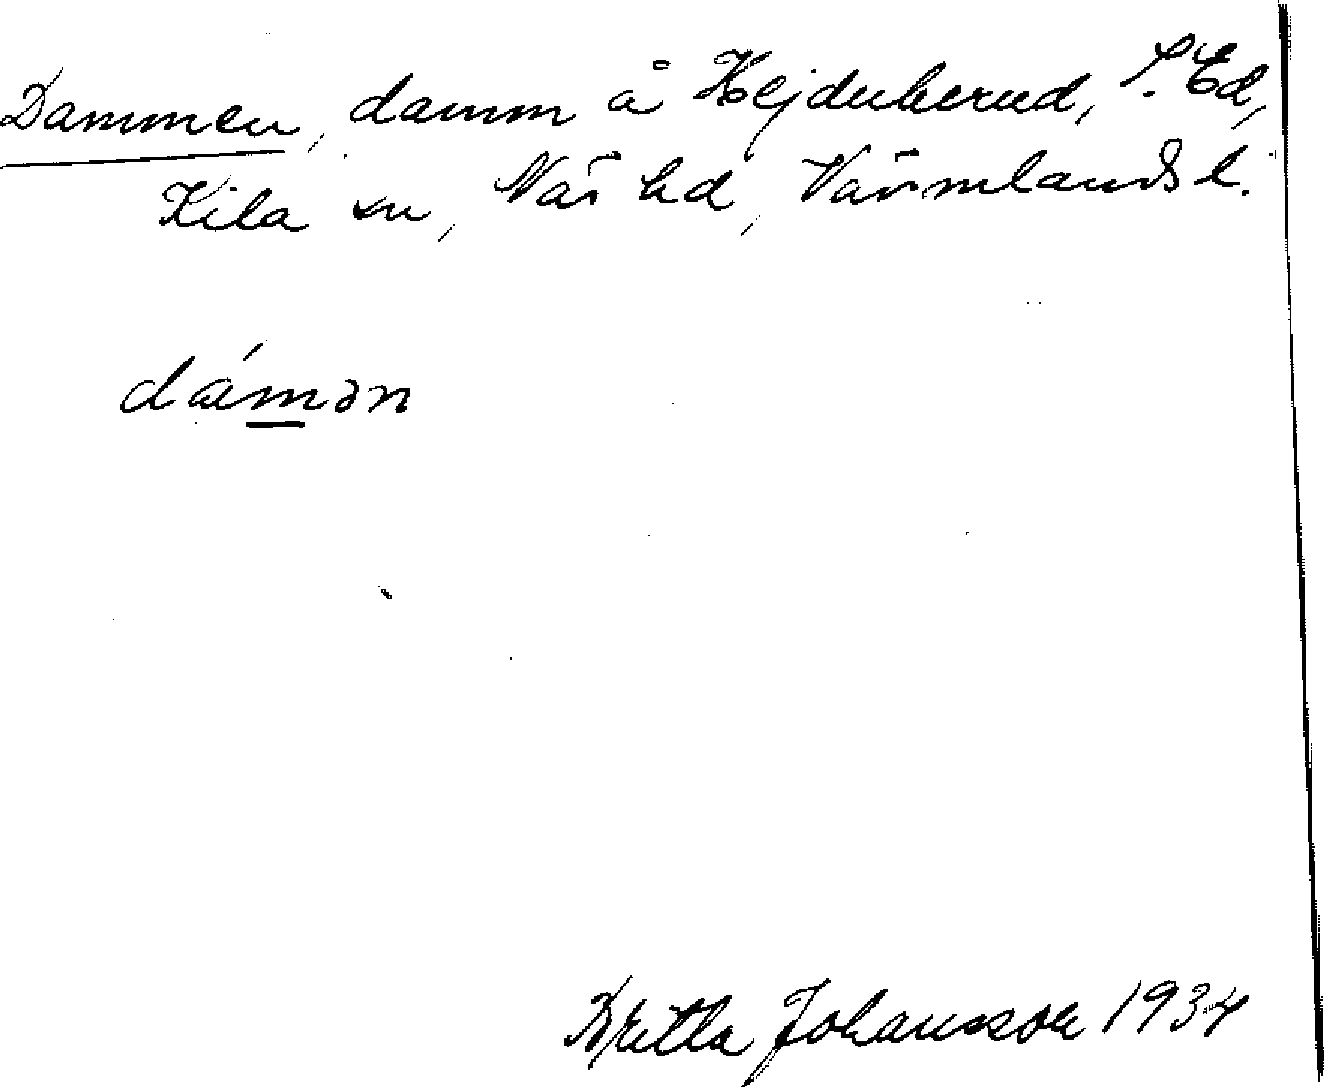 Dammen, damm å Hejduberud, S. Ed,
Kila sn, Näs hd, Värmlands l.
dámən
Britta Johansson 1934